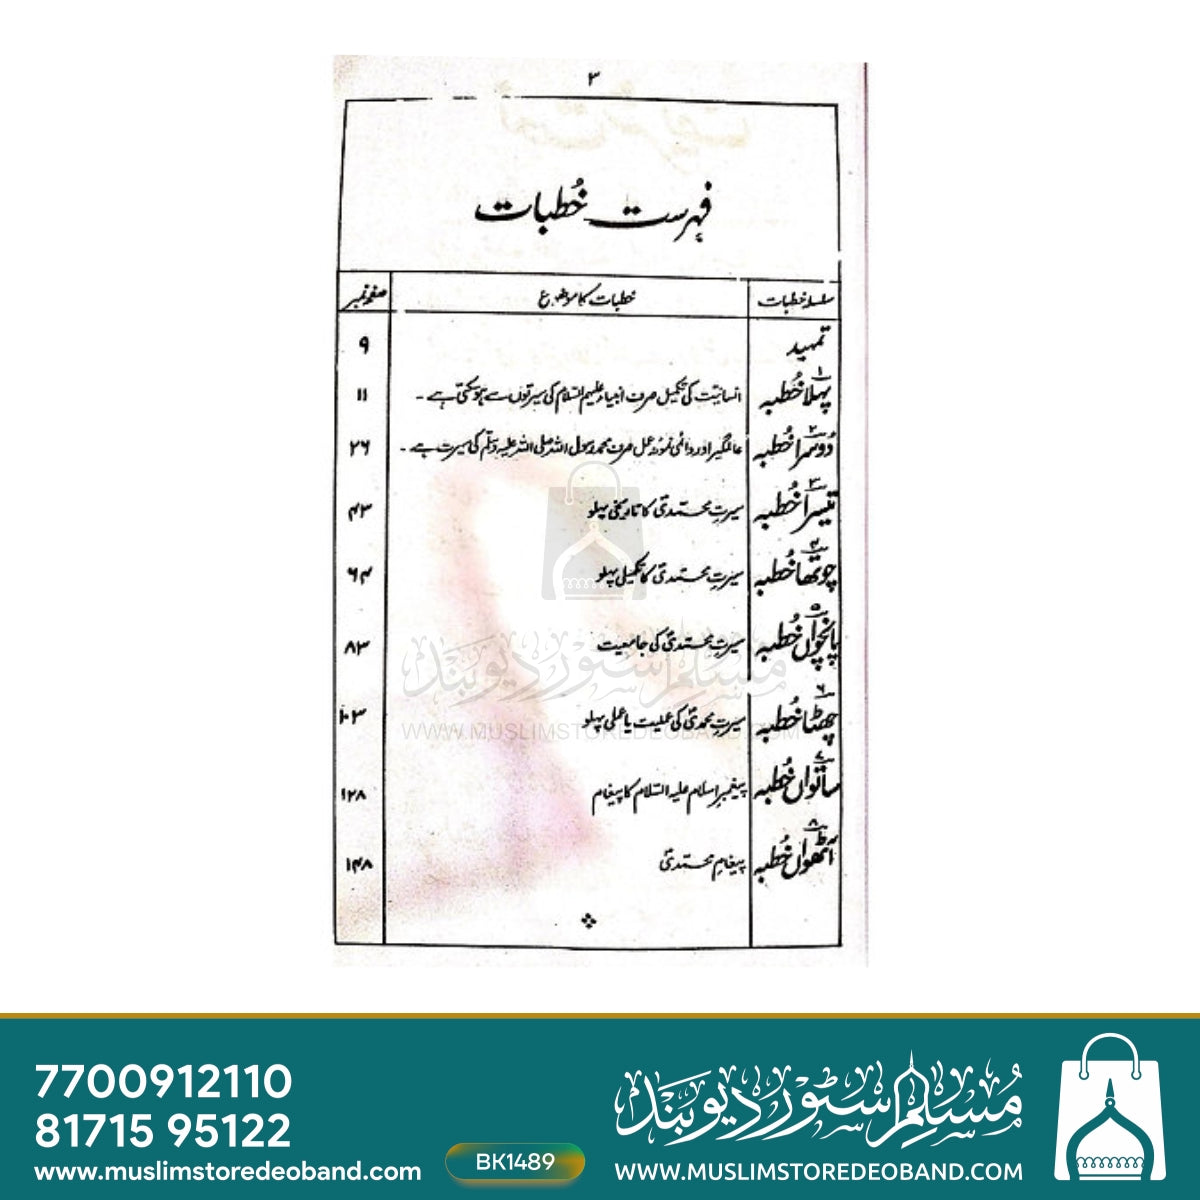 ۳
فہرست خُطبات
سلسلہ خطبات	خطبات کا موضوع	صفحہ نمبر
تمہید	۹
۱
پہلا خُطبہ	انسانیت کی تکمیل صرف انبیاء علیہم السّلام کی سیرتوں سے ہو سکتی ہے۔	۱۱
۲
دُوسرا خُطبہ	عالمگیر اور دائمی نمونۂ عمل صرف محمد رسول اللہ صلی اللہ علیہ وسلّم کی سیرت ہے۔	۲۶
۳
تیسرا خُطبہ	سیرتِ محمّدیؐ کا تاریخی پہلو	۴۳
۴
چوتھا خُطبہ	سیرتِ محمّدیؐ کا تکمیلی پہلو	۶۴
۵
پانچواں خُطبہ	سیرتِ محمّدیؐ کی جامعیت	۸۳
۶
چھٹا خُطبہ	سیرتِ محمدیؐ کی عملیت یا عملی پہلو	۱۰۳
۷
ساتواں خُطبہ	پیغمبرِ اسلام علیہ السّلام کا پیغام	۱۲۸
۸
آٹھواں خُطبہ	پیغامِ محمّدیؐ	۱۴۸
مسلم سٹور دیوبند
WWW.MUSLIMSTOREDEOBAND.COM
7700912110
81715 95122
www.muslimstoredeoband.com
BK1489
مُسلم سٹور دیوبند
WWW.MUSLIMSTOREDEOBAND.COM